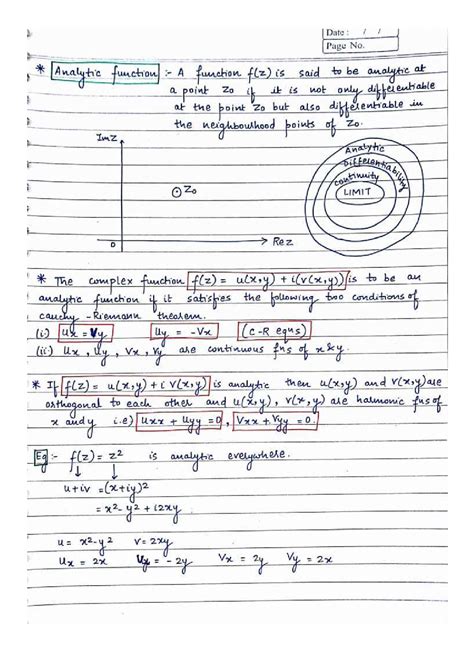 Date : / /
Page No.
* Analytic function :- A function f(z) is said to be analytic at
a point Zo if it is not only differentiable
at the point Zo but also differentiable in
the neighbourhood points of Zo.
Imz
Zo
0
Rez
Analytic
Differentiability
continuity
LIMIT
* The complex function f(z) = u(x,y) + i(v(x,y)) is to be an
analytic function if it satisfies the following two conditions of
cauchy-Riemann theorem.
(i) Ux = Vy Uy = -Vx (C-R eqns)
(ii) Ux, Uy, Vx, Vy are continuous fns of x & y.
* If f(z) = u(x,y) + i v(x,y) is analytic then u(x,y) and v(x,y) are
orthogonal to each other and u(x,y), v(x,y) are harmonic fns of
x and y i.e) Uxx + Uyy = 0, Vxx + Vyy = 0.
Eg :- f(z) = z² is analytic everywhere.
↓ ↓
u+iv = (x+iy)²
= x² - y² + i2xy
u = x² - y² v = 2xy
Ux = 2x Uy = -2y Vx = 2y Vy = 2x